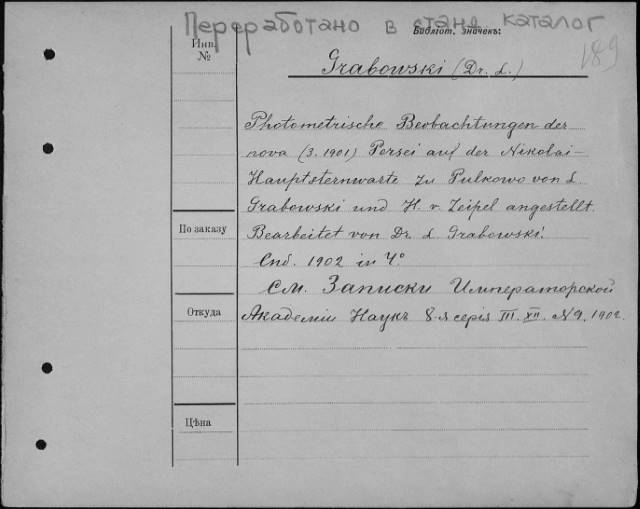 Переработано в станд каталог
Библіот. значекъ:
189
Инв.
№
Grabowski (Dr. L.)
Photometrische Beobachtungen der
nova (3. 1901) Persei auf der Nikolai-
Hauptsternwarte zu Pulkowo von L.
Grabowski und H. v. Zeipel angestellt.
По заказу
Bearbeitet von Dr. L. Grabowski.
Спб. 1902 in 4°
См. Записки Императорской
Откуда
Академіи Наукъ 8-я серія III. XII. N 9, 1902.
Цѣна